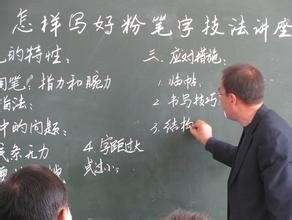 怎样写好粉笔字技法讲座
的特性：
笔。指力和腕力
指法：
中的问题：
柔无力
4. 字距过大
或过小；
三. 应对措施：
1. 临帖；
2. 书写技巧
3. 结构